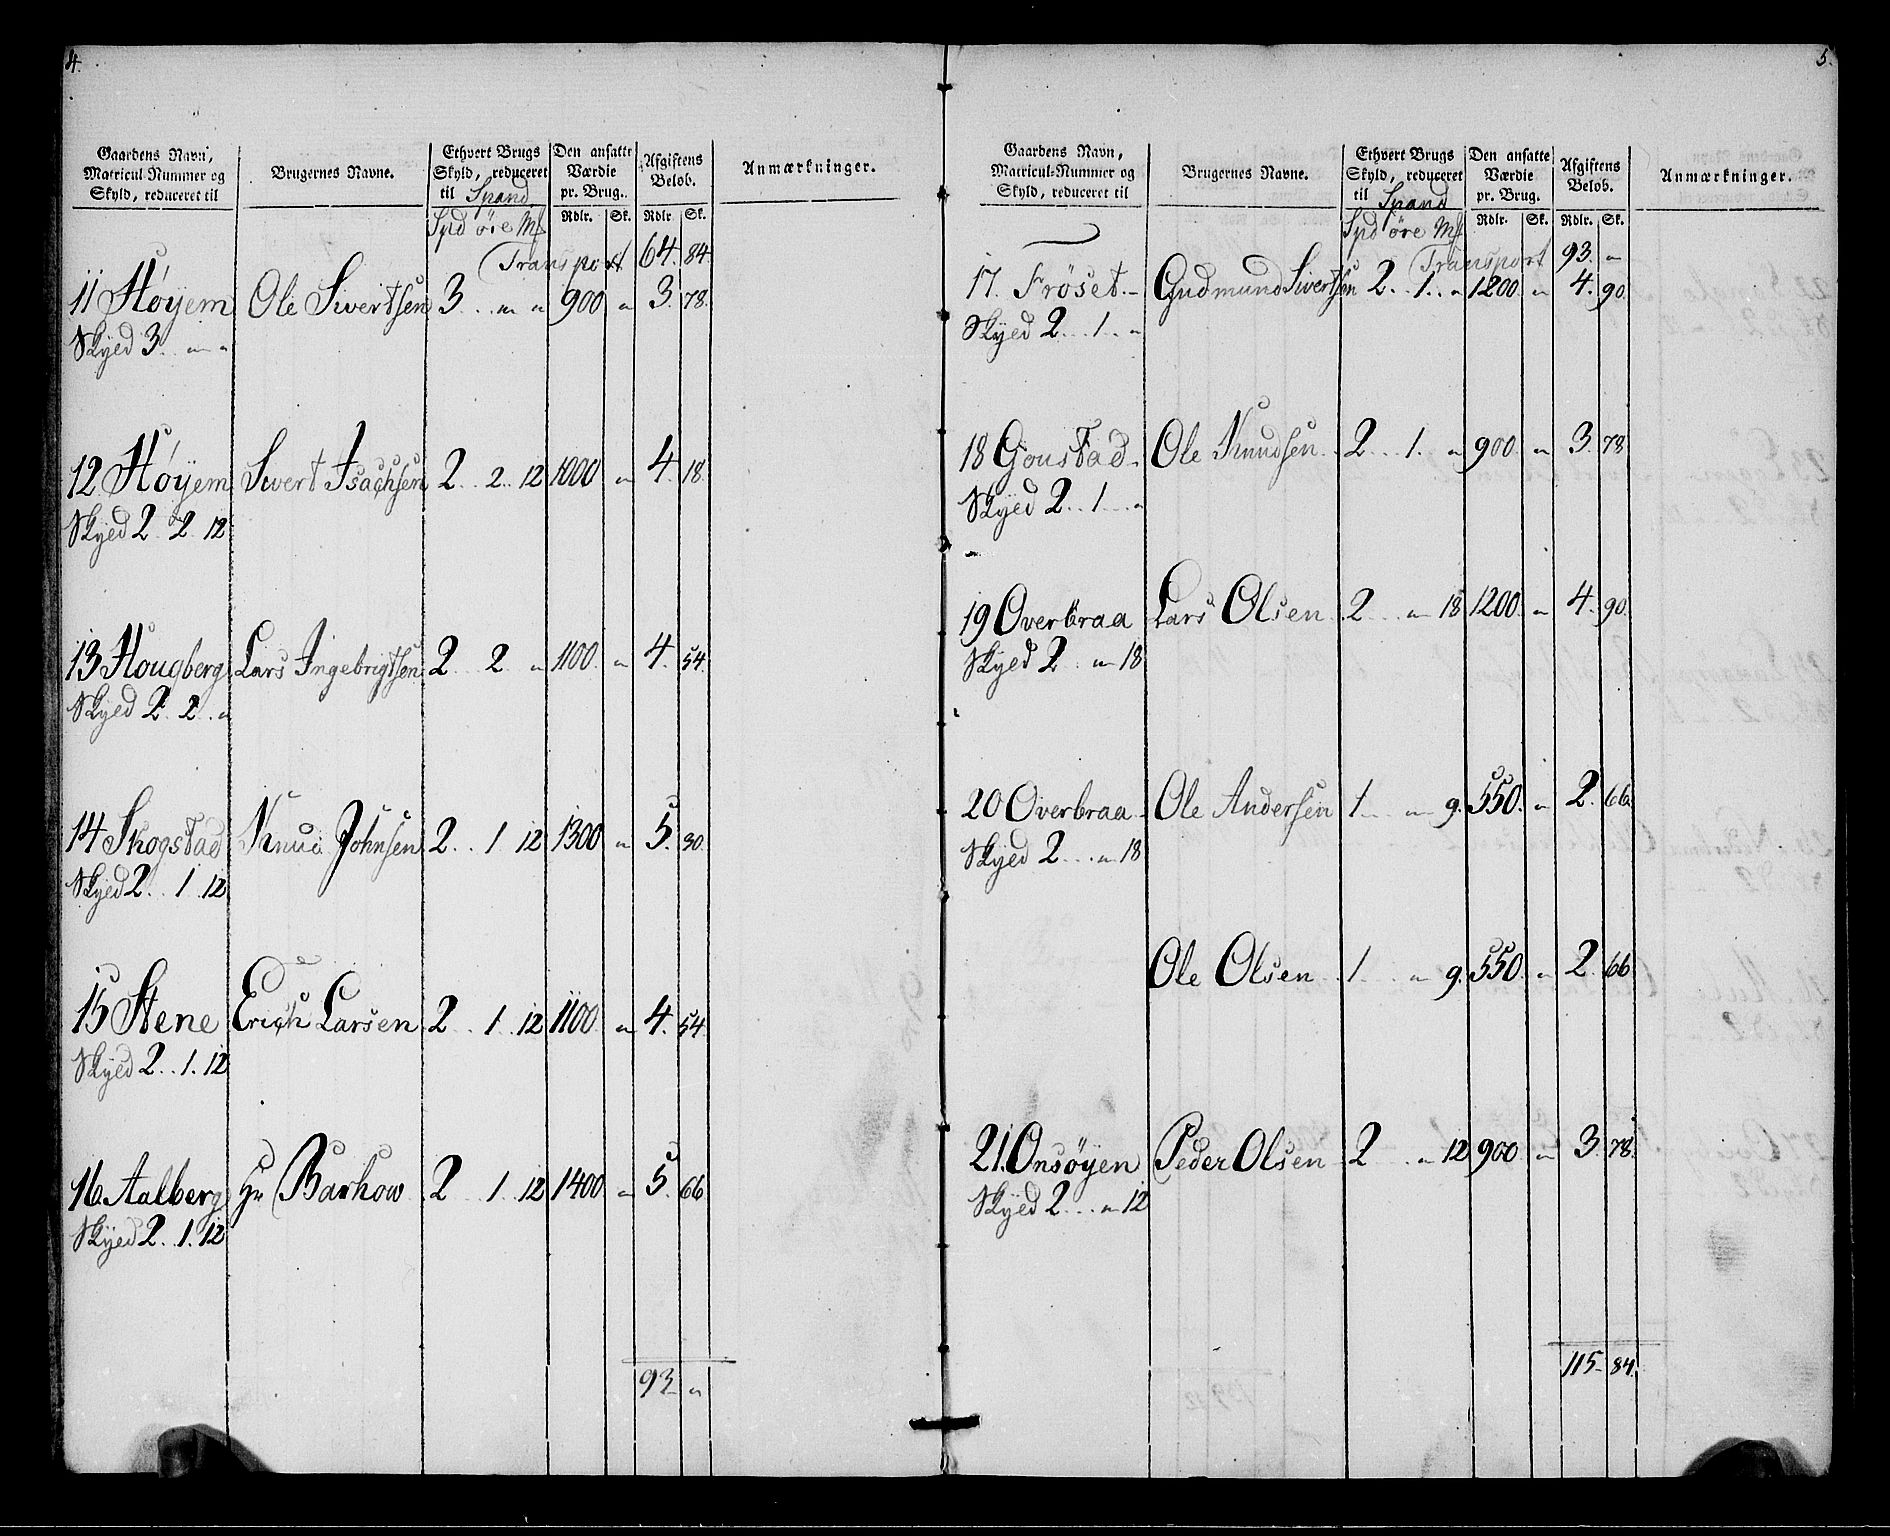 4.
Gaardens Navn, Matricul-Nummer og Skyld, reduceret til
Brugernes Navne.
Ethvert Brugs Skyld, reduceret til Spand
Den ansatte Værdie pr. Brug.
Afgiftens Beløb.
Anmærkninger.
Spd öre Mf Rdlr. Sk. Rdlr. Sk.
Transport 64. 84.
11 Höyem Ole Sivertsen 3 . . „ „ 900 „ 3. 78.
Skyed 3. „ „
12 Höyem Sivert Isachsen 2 . . 2 . . 12 1000 „ 4. 18.
Skyed 2 . 2 . 12
13 Hougberg Lars Ingebrigtsen 2 . . 2 „ 1100. „ 4. 54.
Skyed 2 . 2 . . „
14 Skogstad Knud Johnsen 2 . . 1 12 1300 „ 5. 30.
Skyed 2 . . 1 . 12
15 Stene Erich Larsen 2 . . 1 . . 12 1100 „ 4. 54.
Skyed 2 . . 1 . 12
16. Aalberg Hr Barhow 2 . . 1 . 12 1400 „ 5. 66.
Skyed 2 . . 1 . 12
93 „
5.
Gaardens Navn, Matricul-Nummer og Skyld, reduceret til
Brugernes Navne.
Ethvert Brugs Skyld, reduceret til Spand
Den ansatte Værdie pr. Brug.
Afgiftens Beløb.
Anmærkninger.
Spd öre Mf Rdlr. Sk. Rdlr. Sk.
Transport 93. „
17. Fröset Gudmund Sivertsen 2 . . 1 . . „ 1200. „ 4. 90.
Skyed 2 . . 1 . . „
18 Goustad Ole Knudsen 2 . . 1. „ 900. „ 3. 78
Skyed 2 . . 1 . . . „
19 Overbraa Lars Olsen 2 . . „ 18 1200. „ 4. 90.
Skyed 2 . „ 18
20 Overbraa Ole Andersen 1 . . „ 9. 550. „ 2. 66.
Skyed 2 . . . „ 18
Ole Olsen 1 . . „ 9. 550. „ 2. 66
21. Onsöyen Peder Olsen 2 . . „ 12 900 „ 3. 78.
Skyed 2 . . . „ 12
115 84.